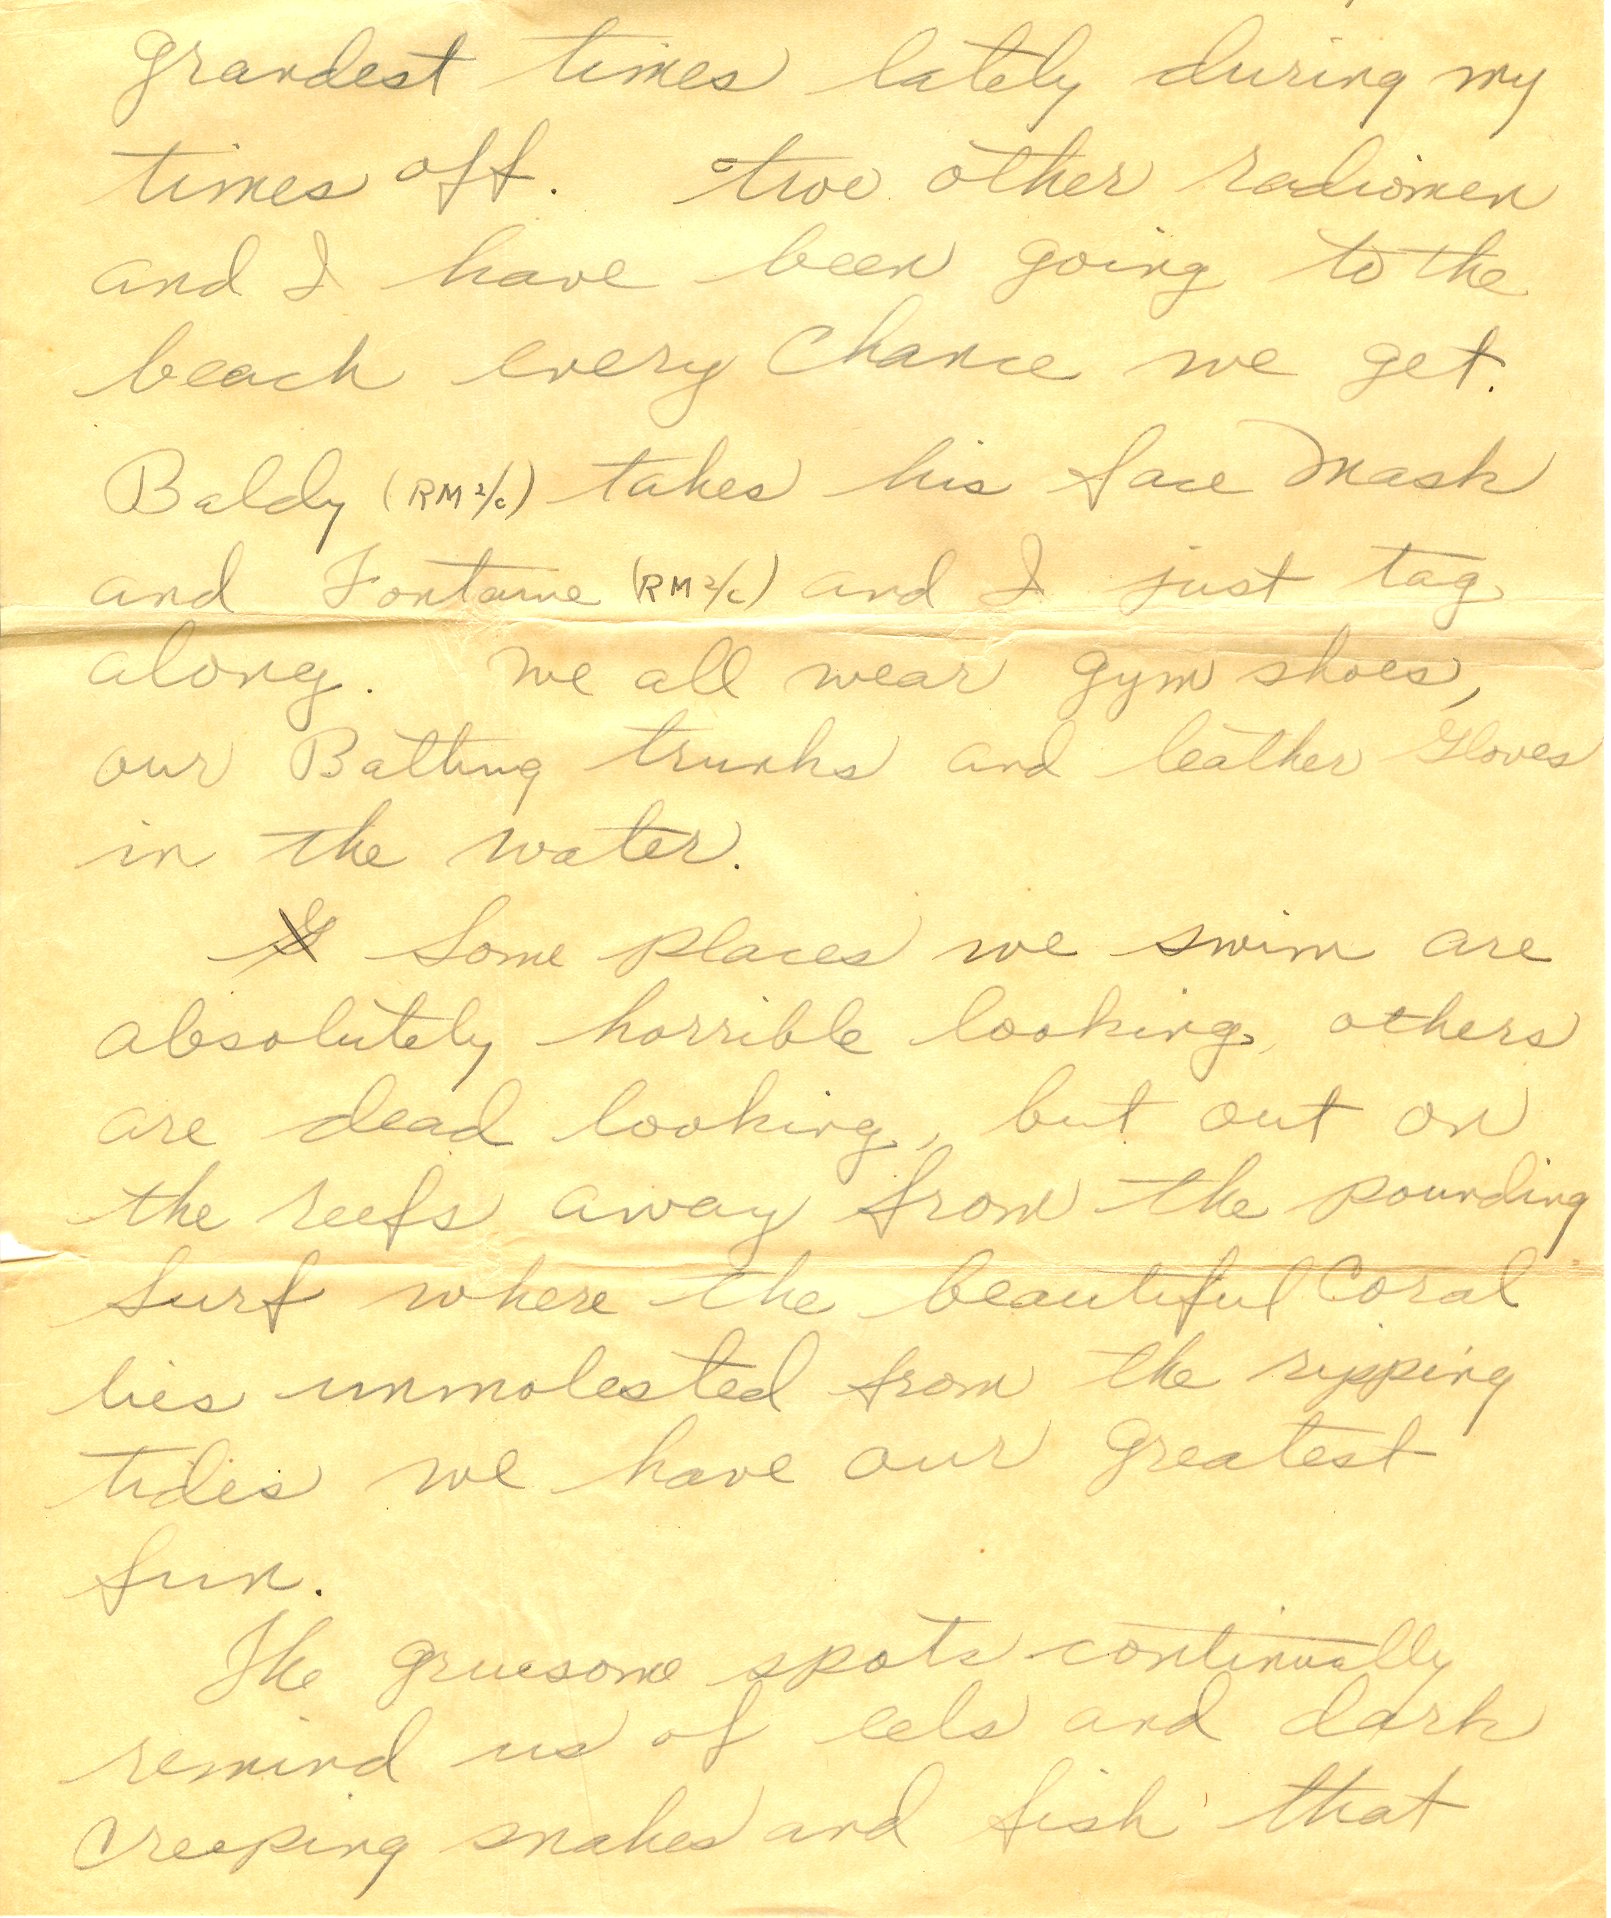 grandest times lately during my
times off. two other radiomen
and I have been going to the
beach every chance we get.
Baldy (RM 2/c) takes his face mask
and Fontaine (RM 2/c) and I just tag
along. We all wear gym shoes,
our Bathing trunks and leather Gloves
in the water.
Some places we swim are
absolutely horrible looking, others
are dead looking, but out on
the reefs away from the pounding
surf where the beautiful Coral
lies unmolested from the ripping
tides we have our greatest
fun.
The gruesome spots continually
remind us of eels and dark
creeping snakes and fish that